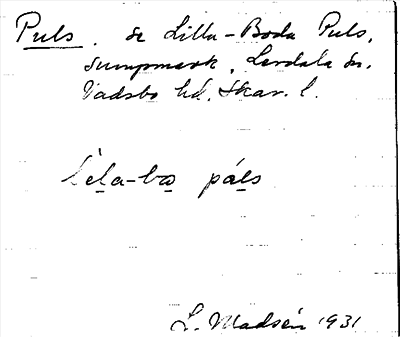 Puls. se Lilla-Boda Puls,
sumpmark, Lerdala sn.
Vadsbo hd. Skar. l.
lela-bo påls
L. Madsén 1931